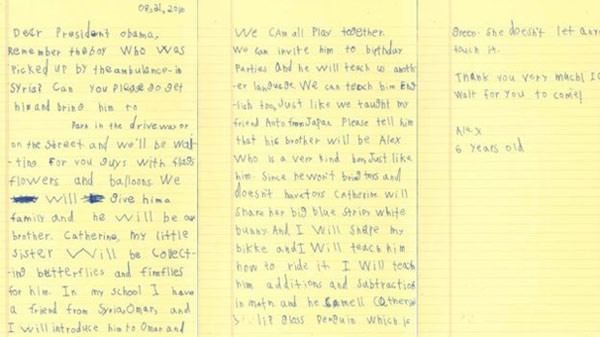 08,21,2016
Dear President Obama,
Remember the boy who was
picked up by the ambulance in
Syria? Can you please go get
him and bring him to
Park in the driveway or
on the street and we'll be wai-
ting for you guys with flags
flowers and balloons. We
will give him a
family and he will be our
brother. Catherine, my little
sister will be collect-
ing butterflies and fireflies
for him. In my school I have
a friend from Syria, Omar, and
I will introduce him to Omar and
We can all play together.
We can invite him to birthday
parties and he will teach us anoth-
er language. We can teach him Eng-
lish too, Just like we taught my
friend Aoto from Japan. Please tell him
that his brother will be Alex
who is a very kind boy, Just like
him. Since he won't bring toys and
doesn't have toys Catherine will
share her big blue stripy white
bunny. And I will share my
bikke and I will teach him
how to ride it. I will teach
him additions and subtraction
in math and he smell Catherine
lip gloss penguin which is
green. She doesn't let any
touch it.
Thank you very much! I
wait for you to come!
Alex
6 years old